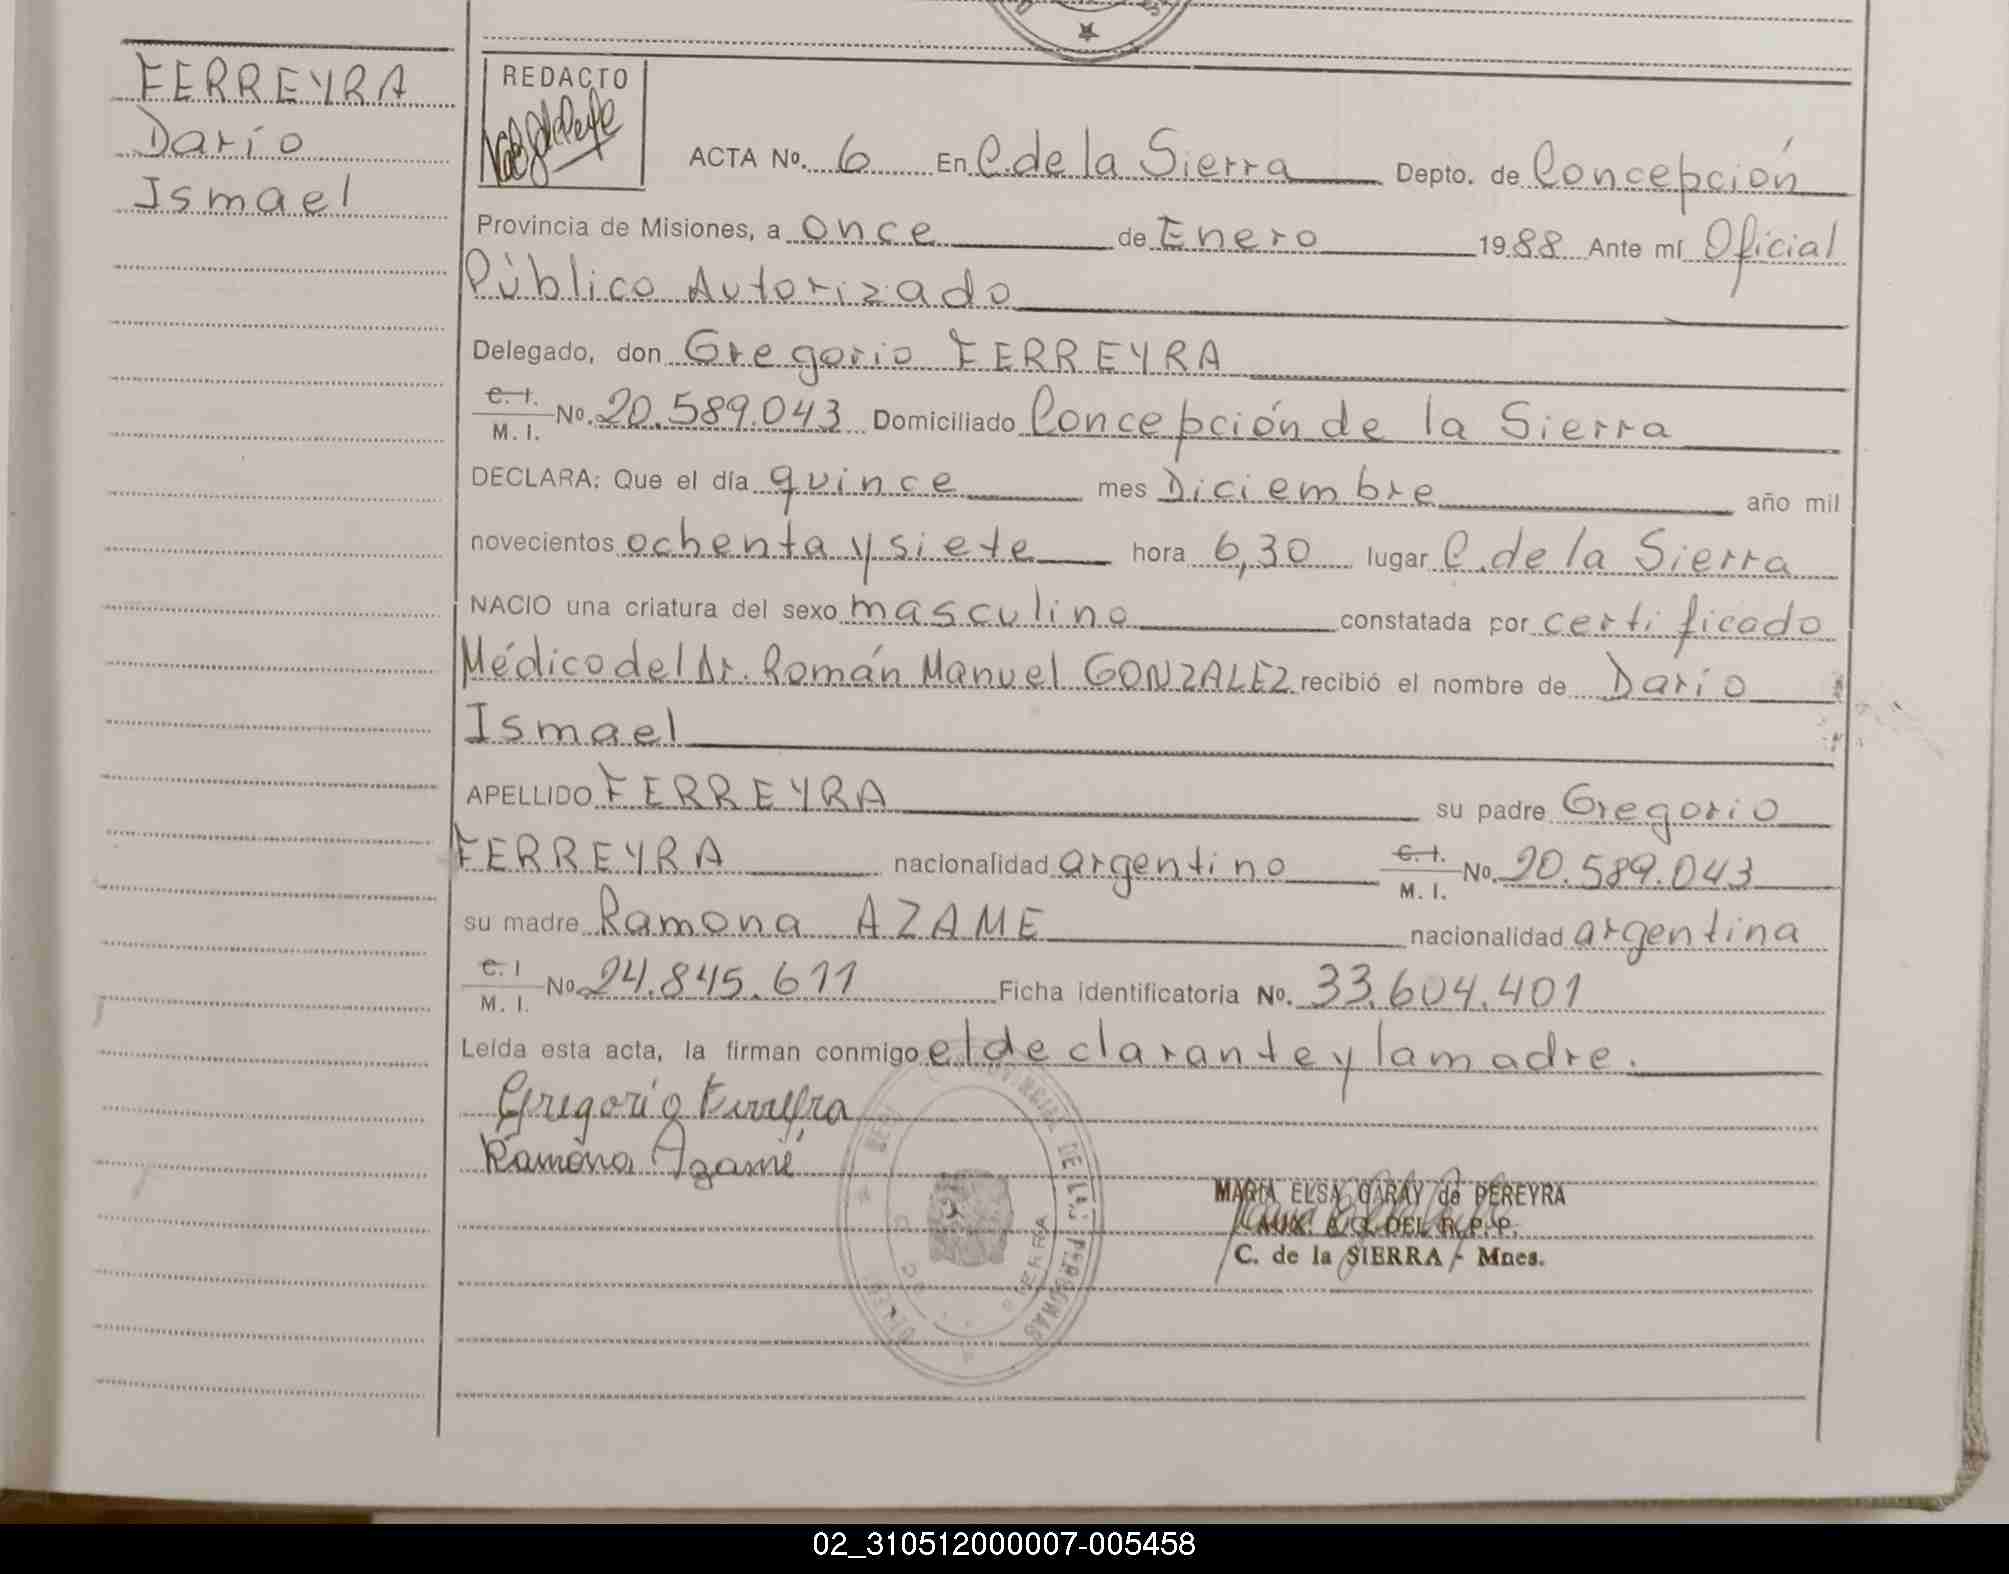 FERREYRA
Darío
Ismael
REDACTO
ACTA No. 6 En C. de la Sierra Depto. de Concepción
Provincia de Misiones, a once de Enero 1988 Ante mí Oficial
Público Autorizado
Delegado, don Gregorio FERREYRA
C. I. / M. I. No. 20.589.043 Domiciliado Concepción de la Sierra
DECLARA: Que el día quince mes Diciembre año mil
novecientos ochenta y siete hora 6,30 lugar C. de la Sierra
NACIO una criatura del sexo masculino constatada por certificado
Médico del Dr. Román Manuel GONZALEZ recibió el nombre de Darío
Ismael
APELLIDO FERREYRA su padre Gregorio
FERREYRA nacionalidad argentino C. I. / M. I. No. 20.589.043
su madre Ramona AZAME nacionalidad argentina
C. I / M. I. No. 24.845.611 Ficha identificatoria No. 33.604.401
Leída esta acta, la firman conmigo el declarante y la madre.
Gregorio Ferreyra
Ramona Azamé
PROVINCIAL DE LAS PERSONAS
MARIA ELSA GARAY de PEREYRA
AUX. DEL R. P. P.
C. de la SIERRA - Mnes.
02_310512000007-005458